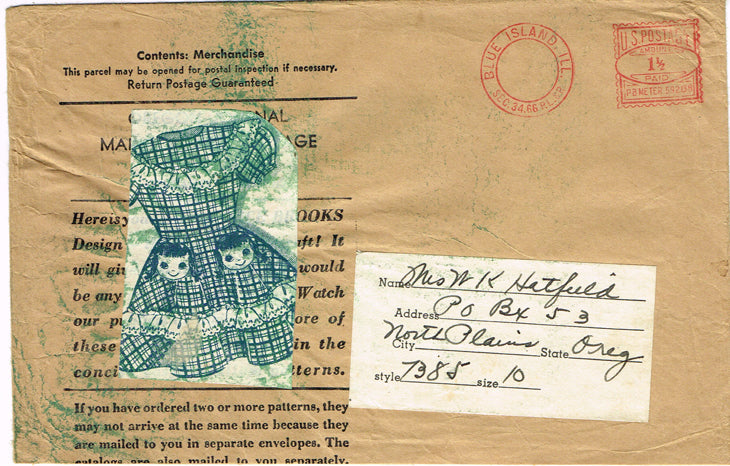 Contents: Merchandise
This parcel may be opened for postal inspection if necessary.
Return Postage Guaranteed
NAL
MA
AGE
Here is y
OOKS
Design
aft! It
will giv
would
be any
Watch
our p
ore of
these
in the
conci
tterns.
If you have ordered two or more patterns, they
may not arrive at the same time because they
are mailed to you in separate envelopes. The
catalogs are also mailed to you separately.
BLUE ISLAND, ILL.
SEC. 34.66 P.L.&R.
U.S. POSTAGE
AMOUNT
1½
PAID
P.B. METER 59208
Name Mrs W K Hatfield
Address P O Bx 53
City North Plains State Oreg
style 1385 size 10